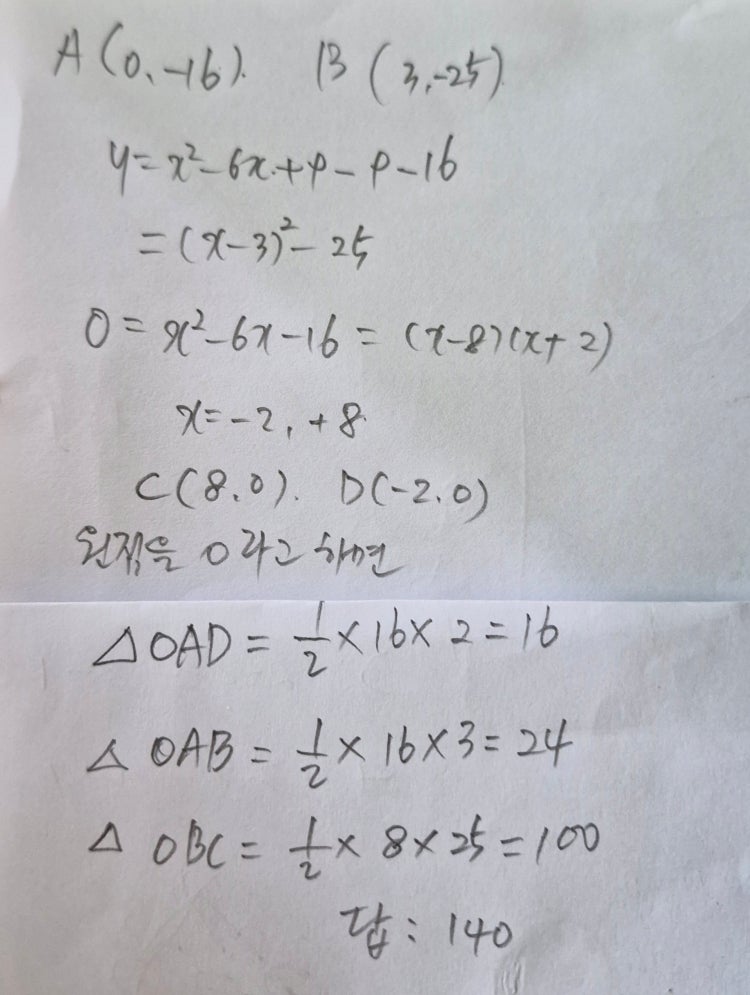 A(0,-16).  B(3,-25)
y=x²-6x+9-9-16
=(x-3)²-25
0=x²-6x-16=(x-8)(x+2)
x=-2, +8
C(8.0).  D(-2.0)
원점을 O라고 하면
△OAD = 1/2 × 16 × 2 = 16
△OAB = 1/2 × 16 × 3 = 24
△OBC = 1/2 × 8 × 25 = 100
답 : 140